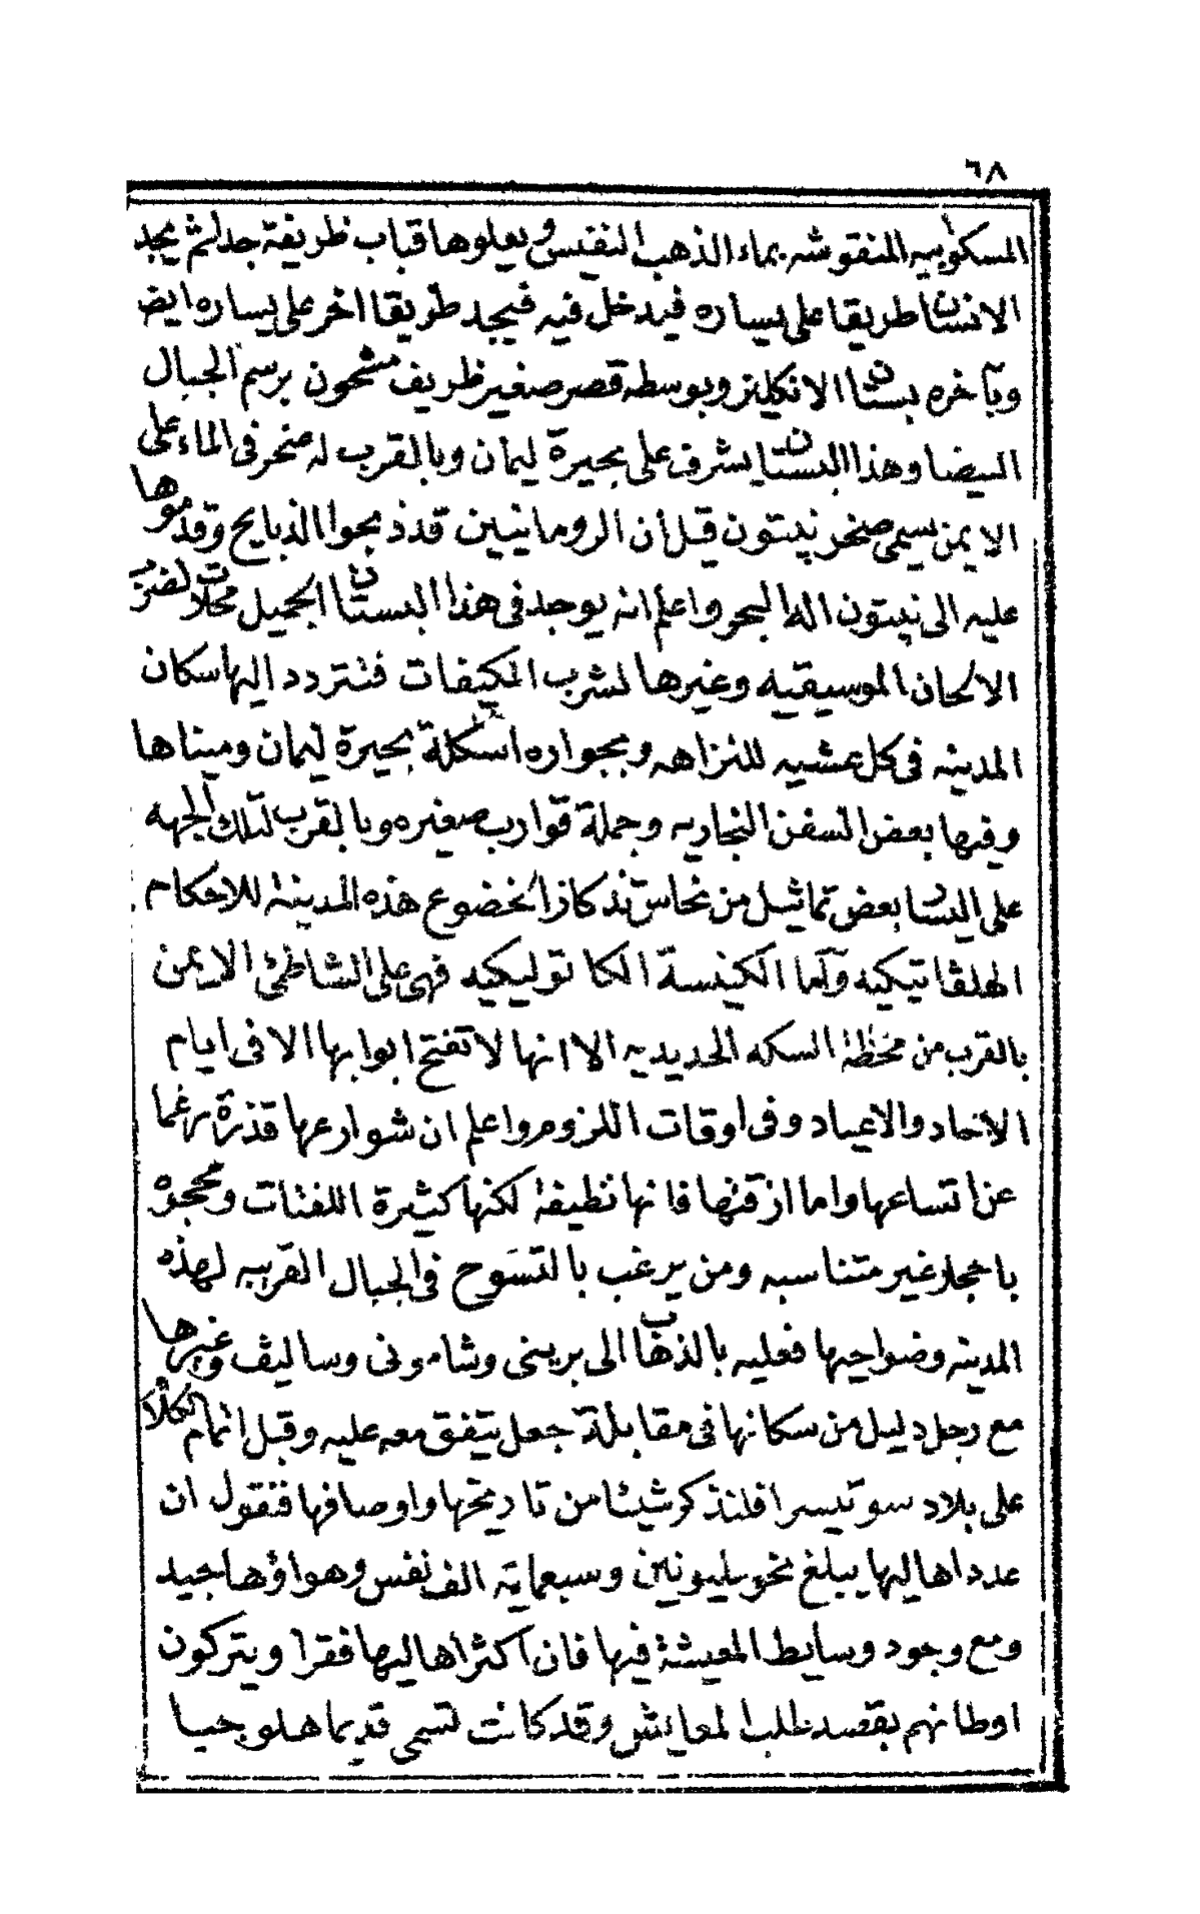 ٦٨
المسكوابيه المنقوشه بماء الذهب النفيس ويعلوها قباب ظريفة جدا ثم يجد
الانسان طريقا على يساره فيدخل فيه فيجد طريقا اخر على يساره ايضا
وبآخره بستان الانكليز وبوسطه قصر صغير ظريف مشحون برسم الجبال
البيضا وهذا البستان يشرف على بحيرة ليمان وبالقرب له صخر فى الماء على
الايمن يسمى صخر نبتون قيل أن الرومانيين قد ذبحوا الذبايح وقدموها
عليه الى نبتون اله البحر واعلم انه يوجد فى هذا البستان الجميل محلات لضرب
الالحان الموسيقيه وغيرها لشرب المكيفات فتتردد اليها سكان
المدينه فى كل عشيه للنزاهه وبجواره اسكلة بحيرة ليمان وميناها
وفيها بعض السفن التجاريه وجملة قوارب صغيره وبالقرب لتلك الجهه
على اليسار بعض تماثيل من نحاس تذكارا لخضوع هذه المدينة للاحكام
الهلڤاتيكيه وأما الكنيسة الكاتوليكيه فهى على الشاطئ الايمن
بالقرب من محطة السكه الحديديه الا انها لا تفتح ابوابها الا فى ايام
الاحاد والاعياد وفى اوقات اللزوم واعلم ان شوارعها قذرة رغما
عن اتساعها واما ازقتها فانها نظيفة لكنها كثيرة اللفتات ومحجره
باحجار غير متناسبه ومن يرغب بالتسوح فى الجبال القريبه لهذه
المدينه وضواحيها فعليه بالذهاب الى بريسى وشامونى وساليڤ وغيرها
مع رجل دليل من سكانها فى مقابلة جعل يتفق معه عليه وقبل اتمام الكلام
على بلاد سوتيسرا فلنذكر شيئا من تاريخها واوصافها فنقول ان
عدد اهاليها يبلغ نحو مليونين وسبعماية الف نفس وهواؤها جيد
ومع وجود وسايط المعيشة فيها فان اكثر اهاليها فقرا ويتركون
اوطانهم بقصد طلب المعايش وقد كانت تسمى قديما هلوجيا